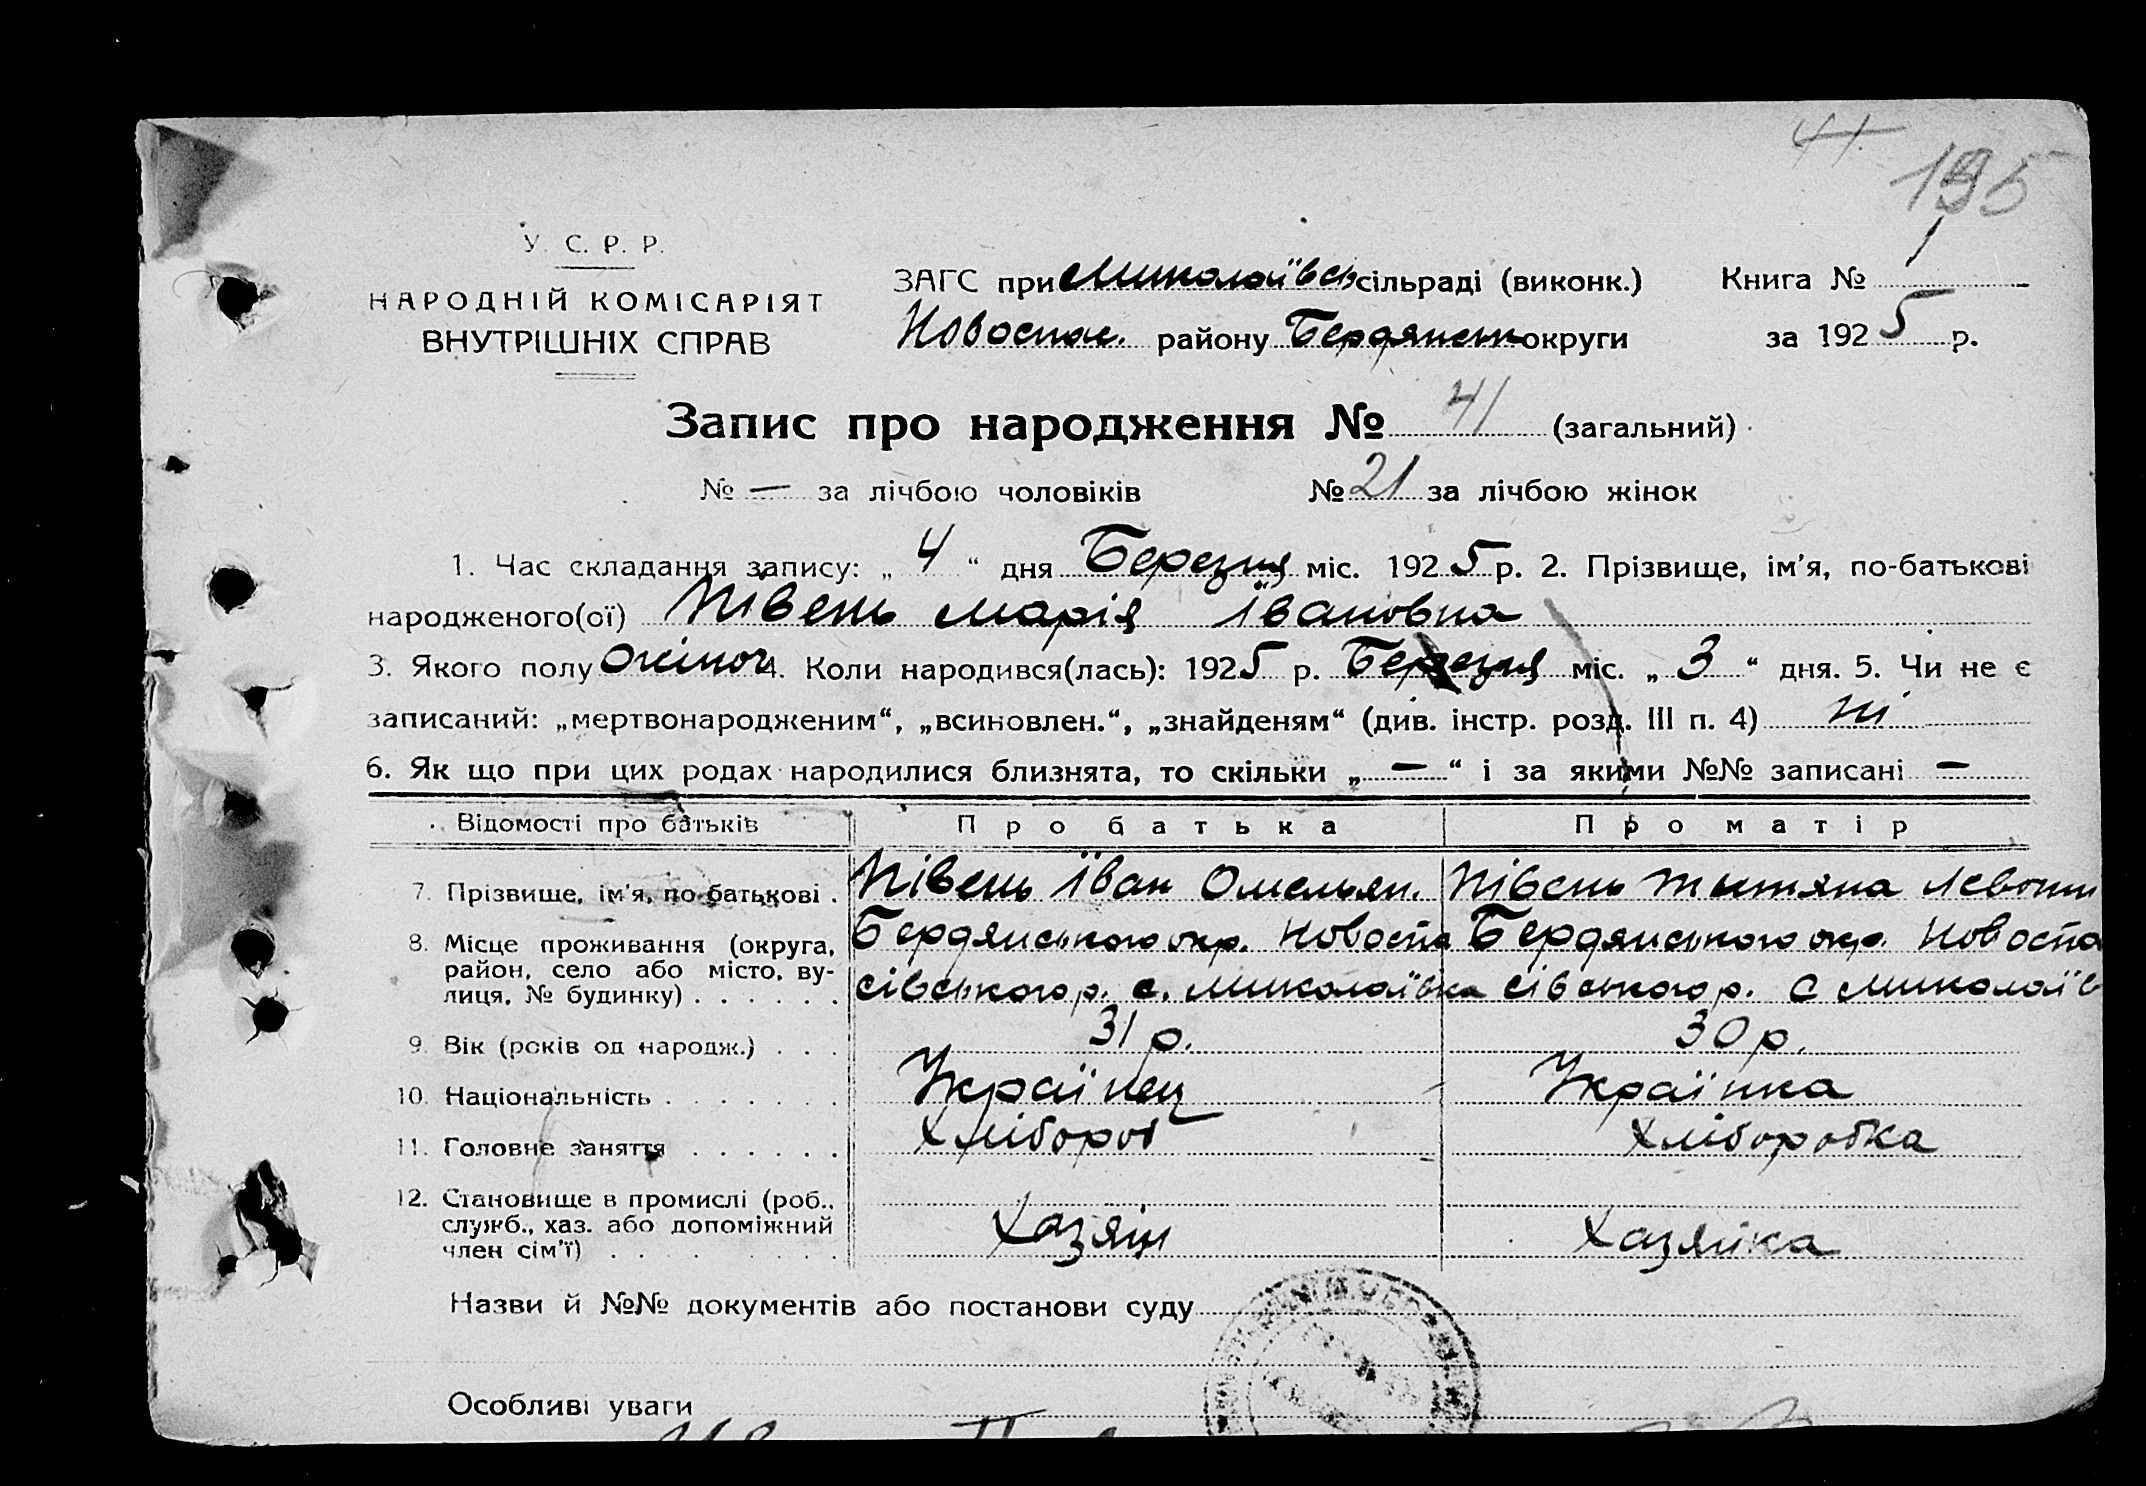 44
195
У. С. Р. Р.
НАРОДНІЙ КОМІСАРІЯТ
ВНУТРІШНІХ СПРАВ
ЗАГС при Миколаївсь сільраді (виконк.) Книга № 1
Новоспас. району Бердянськ округи за 1925 р.
Запис про народження № 41 (загальний)
№ — за лічбою чоловіків № 21 за лічбою жінок
1. Час складання запису: „ 4 “ дня Березня міс. 1925 р. 2. Прізвище, ім’я, по-батькові
народженого(ої) Півень Марія Івановна
3. Якого полу жіноч 4. Коли народився(лась): 1925 р. Березня міс. „ 3 “ дня. 5. Чи не є
записаний: „мертвонародженим“, „всиновлен.“, „знайденям“ (див. інстр. розд. III п. 4) ні
6. Як що при цих родах народилися близнята, то скільки „ — “ і за якими №№ записані —
Відомості про батьків Про батька Про матір
7. Прізвище, ім’я, по-батькові . Півень Іван Омельян. Півень Тытяна Левонт
8. Місце проживання (округа, Бердянського окр. Новоспа Бердянського окр. Новоспа
район, село або місто, ву-
лиця, № будинку) . . . . . . сівського р. с. Миколаївка сівського р. с Миколаїв
9. Вік (років од народж.) . . . 31 р. 30 р.
10. Національність . . . . . . . Українец Українка
11. Головне заняття . . . . . . Хлібороб Хліборобка
12. Становище в промислі (роб.,
служб., хаз. або допоміжний Хазяін Хазяйка
член сім’ї) . . . . . . . .
Назви й №№ документів або постанови суду
Особливі уваги